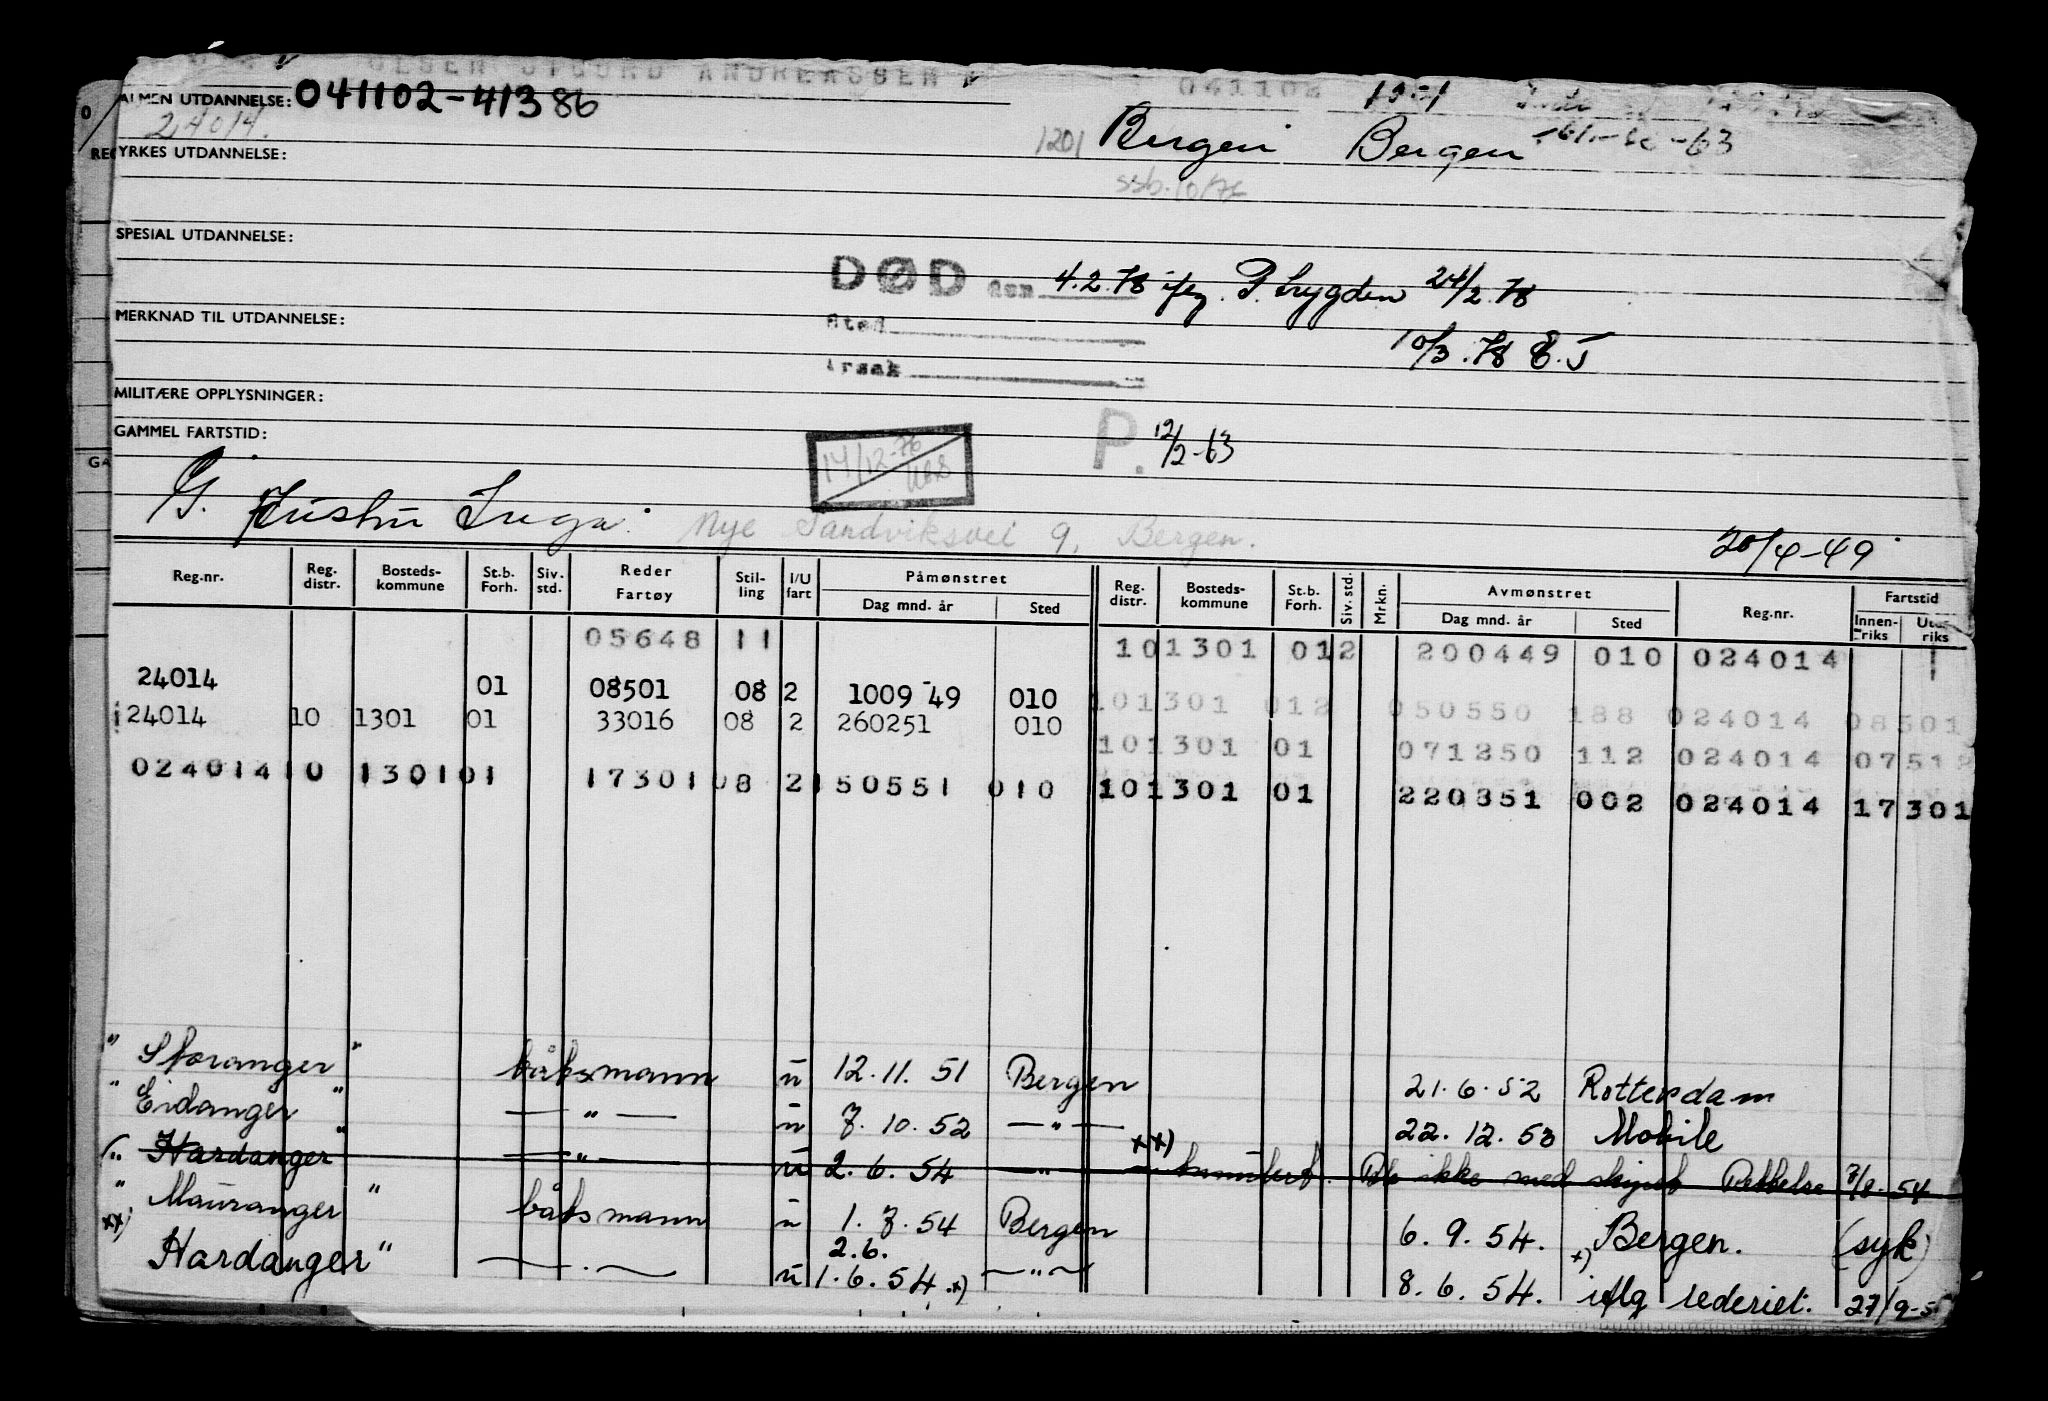 OLSEN SIGURD ANDREASSEN 041102
ALMEN UTDANNELSE: 041102-41386
24014.
1201 Bergen Bergen
YRKES UTDANNELSE:
ssb. 10/76
SPESIAL UTDANNELSE:
DØD den 4.2.78 ifg. P. trygden 24/2.78
MERKNAD TIL UTDANNELSE: Sted
10/3.78 E.J
Årsak
MILITÆRE OPPLYSNINGER:
GAMMEL FARTSTID: P. 12/2-63
14/12-76
G. Inga. Nye Sandviksvei 9, Bergen.
20/4-49
Reg.nr. Reg. distr. Bosteds-kommune St.b. Forh. Siv. std. Reder Fartøy Stil-ling I/U fart Påmønstret Dag mnd. år Sted Reg. distr. Bosteds-kommune St.b. Forh. Siv. std. Mrkn. Avmønstret Dag mnd. år Sted Reg.nr. Fartstid Innen-riks Uten-riks
05648 11 10 1301 012 200449 010 024014
24014 01 08501 08 2 1009 49 010 101301 012 050550 188 024014 08501
24014 10 1301 01 33016 08 2 260251 010 101301 01 071250 112 024014
024014 10 1301 01 17301 08 2 150551 010 101301 01 220851 002 024014 17301
" Storanger " båtsmann u 12.11.51 Bergen 21.6.52 Rotterdam
" Eidanger " — " — u 7.10.52 — " — 22.12.53 Mobile
" Hardanger " — " — u 2.6.54 — " — xx) ikke med skipet 54
" Mauranger " båtsmann u 1.7.54 Bergen 6.9.54. Bergen. (syk)
xx) 2.6.
Hardanger" — . — u 1.6.54 x) — " — 8.6.54. x) iflg rederiet. 27/9-5